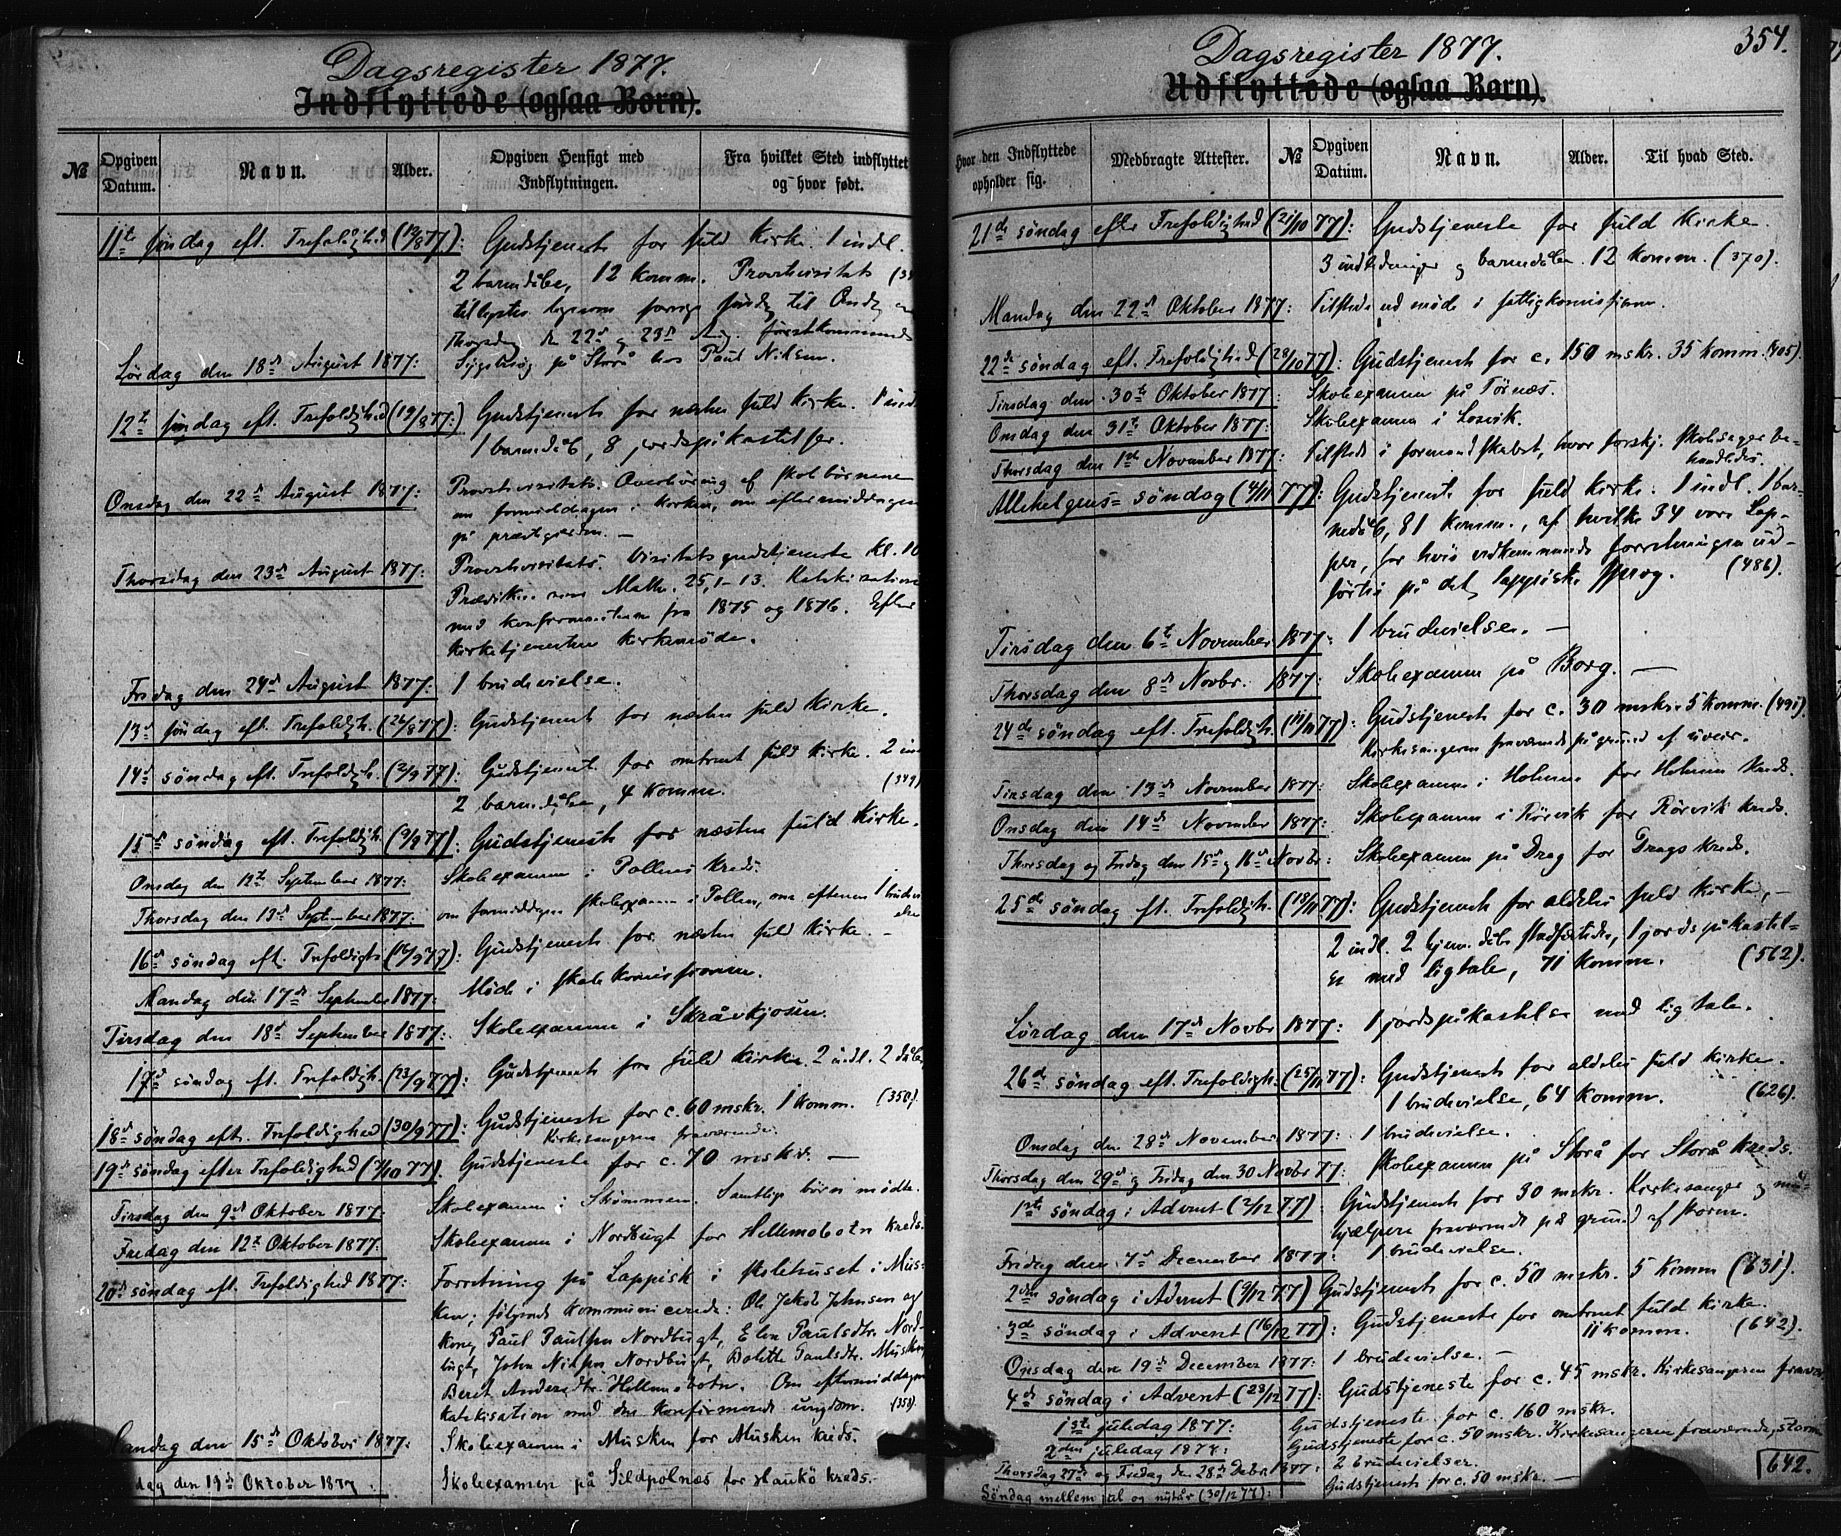 Dagsregister 1877.
Indflyttede (ogsaa Børn).
No
Opgiven Datum.
Navn.
Alder.
Opgiven Hensigt med Indflytningen.
Fra hvilket Sted indflyttet og hvor født.
11te søndag eft. Trefoldighed (12/8 77): Gudstjeneste for fuld kirke. 1 indl.
2 barnedåbe, 12 komm. Provstevisitats
til Onsdag
Thorsdag d. 22de og 23de Aug. førstkommende
Lördag den 18de August 1877: Sygebesøg på Storå hos Paul Nilsen.
12te søndag eft. Trefoldighed (19/8 77:) Gudstjeneste for næsten fuld kirke. 1 indl.
1 barnedåb, 8 jordspåkastelser.
Onsdag den 22de August 1877: Provstevisitats. Overhøring af skolbørnene
om formiddagen i kirken, om eftermiddagen
på præstgården. —
Thorsdag den 23de August 1877: Provstevisitats. Visitatsgudstjeneste kl. 10
Math. 25, 1-13. Katekisation
med konfirmanterne fra 1875 og 1876. Efter
kirketjenesten kirkemøde.
Fredag den 24de August 1877: 1 brudevielse.
13de søndag eft. Trefoldigh. (26/8 77): Gudstjeneste for næsten fuld kirke.
14de søndag eft. Trefoldigh. (2/9 77): Gudstjeneste for omtrent fuld kirke. 2
2 barnedåbe, 4 komm. (349)
15de søndag eft. Trefoldigh. (9/9 77): Gudstjeneste for næsten fuld kirke.
Onsdag den 12te September 1877: Skoleexamen i Pollens kreds.
Thorsdag den 13de September 1877: om formiddagen skoleexamen i Pollen, om efterm. 1 brudevielse
16de søndag eft. Trefoldighs (16/9 77): Gudstjeneste for næsten fuld kirke. —
Mandag den 17de September 1877: Møde i skolekomissionen.
Tirsdag den 18de September 1877: Skoleexamen i Skråvkjosen.
17de søndag eft. Trefoldigh. (23/9 77): Gudstjeneste for fuld kirke. 2 indl. 2 dåbe
18de søndag eft. Trefoldighed (30/9 77): Gudstjeneste for c. 60 mskr. 1 komm. (350)
Kirkesangeren fraværende.
19de søndag efter Trefoldighed (7/10 77). Gudstjeneste for c. 70 mskr. —
Tirsdag den 9de Oktober 1877: Skoleexamen i Skømmen. Samtlige børn mødte.
Fredag den 12te Oktober 1877: Skoleexamen i Nordbugt for Hellemobotn kreds.
20de søndag eft. Trefoldighed 1877: Forretning på Lappisk i skolehuset i Mus-
ken; følgende kommunicerede: Ole Jakob Johnsen og
kone, Paul Paulsen Nordbugt, Elen Paulsdtr. Nord-
bugt, John Nilsen Nordbugt, Bolette Paulsdtr. Musken
Beret Andersdtr. Hellemobotn. Om eftermiddagen
katekisation med den konfirmerede ungdom. (358).
Mandag den 15de Oktober 1877: Skoleexamen i Musken for Musken kreds.
dag den 19de Oktober 1877 Skoleexamen på Sildpolnæs for Haukø kreds.
Dagsregister 1877.
354.
Udflyttede (ogsaa Børn).
Hvor den Indflyttede opholder sig.
Medbragte Attester.
No
Opgiven Datum.
Navn.
Alder.
Til hvad Sted.
21de søndag efter Trefoldighed (21/10 77): Gudstjeneste for fuld kirke.
3 indledninger og barnedåbe. 12 komm. (370).
Mandag den 22de Oktober 1877: Tilstede ved møde i fattigkomissionen.
22de søndag eft. Trefoldighed (28/10 77): Gudstjeneste for c. 150 mskr. 35 komm. (405)
Tirsdag den 30te Oktober 1877: Skoleexamen på Tørnæs.
Onsdag den 31te Oktober 1877: Skoleexamen i Losvik.
Thorsdag den 1ste November 1877: Tilstede i formandskabet, hvor forskj. skolesager be-
handledes.
Allehelgens-søndag (4/11 77): Gudstjeneste for fuld kirke. 1 indl. 1 bar-
nedåb, 81 komm., af hvilke 34 vare Lap-
per, for hvis vedkommende forretningen ud-
førtes på det lappiske sprog. (486).
Tirsdag den 6te November 1877: 1 brudevielse. —
Thorsdag den 8de Novbr. 1877: Skoleexamen på Borg. —
24de søndag eft. Trefoldigh. (11/11 77): Gudstjeneste for c. 30 mskr. 5 komm. (491).
Kirkesangeren fraværende på grund af uveir.
Tirsdag den 13de November 1877: Skoleexamen i Holmen for Holmen kreds.
Onsdag den 14de November 1877: Skoleexamen i Rørvik for Rørvik kreds.
Thorsdag og Fredag den 15de og 16de Novbr: Skoleexamen på Drag for Drags kreds.
25de søndag eft. Trefoldigh. (18/11 77): Gudstjeneste for aldeles fuld kirke, —
2 indl. 2 hjemmedåb stadfæstede, 1 jordspåkastel-
se med ligtale, 71 komm. (562).
Lördag den 17de Novbr 1877: 1 jordspåkastelse med ligtale.
26de søndag eft. Trefoldigh. (25/11 77): Gudstjeneste for aldeles fuld kirke.
1 brudevielse, 64 komm. (626).
Onsdag den 28de November 1877: 1 brudevielse.
Thorsdag den 29de og Fredag den 30 Novbr 77: Skoleexamen på Storå for Storå kreds.
1ste søndag i Advent (2/12 77): Gudstjeneste for 30 mskr. Kirkesanger og med-
hjælpere fraværende på grund af storm.
Fredag den 7de December 1877: 1 brudevielse.
2den søndag i Advent (9/12 77) Gudstjeneste for c. 50 mskr. 5 komm (631).
3de søndag i Advent (16/12 77): Gudstjeneste for omtrent fuld kirke.
11 komm. (642).
Onsdag den 19de December 1877: 1 brudevielse. —
4de søndag i Advent (23/12 77): Gudstjeneste for c. 45 mskr. Kirkesangeren fravær.
1ste juledag 1877: Gudstjeneste for c. 160 mskr.
2den juledag 1877: Gudstjeneste for c. 50 mskr. Kirkesangeren fraværende, storm
Thorsdag 27de og Fredag den 28de Debr. 1877: 2 brudevielser.
Søndag mellem jul og nytår (30/12 77): Gudstjeneste for c. 50 mskr. —
642.